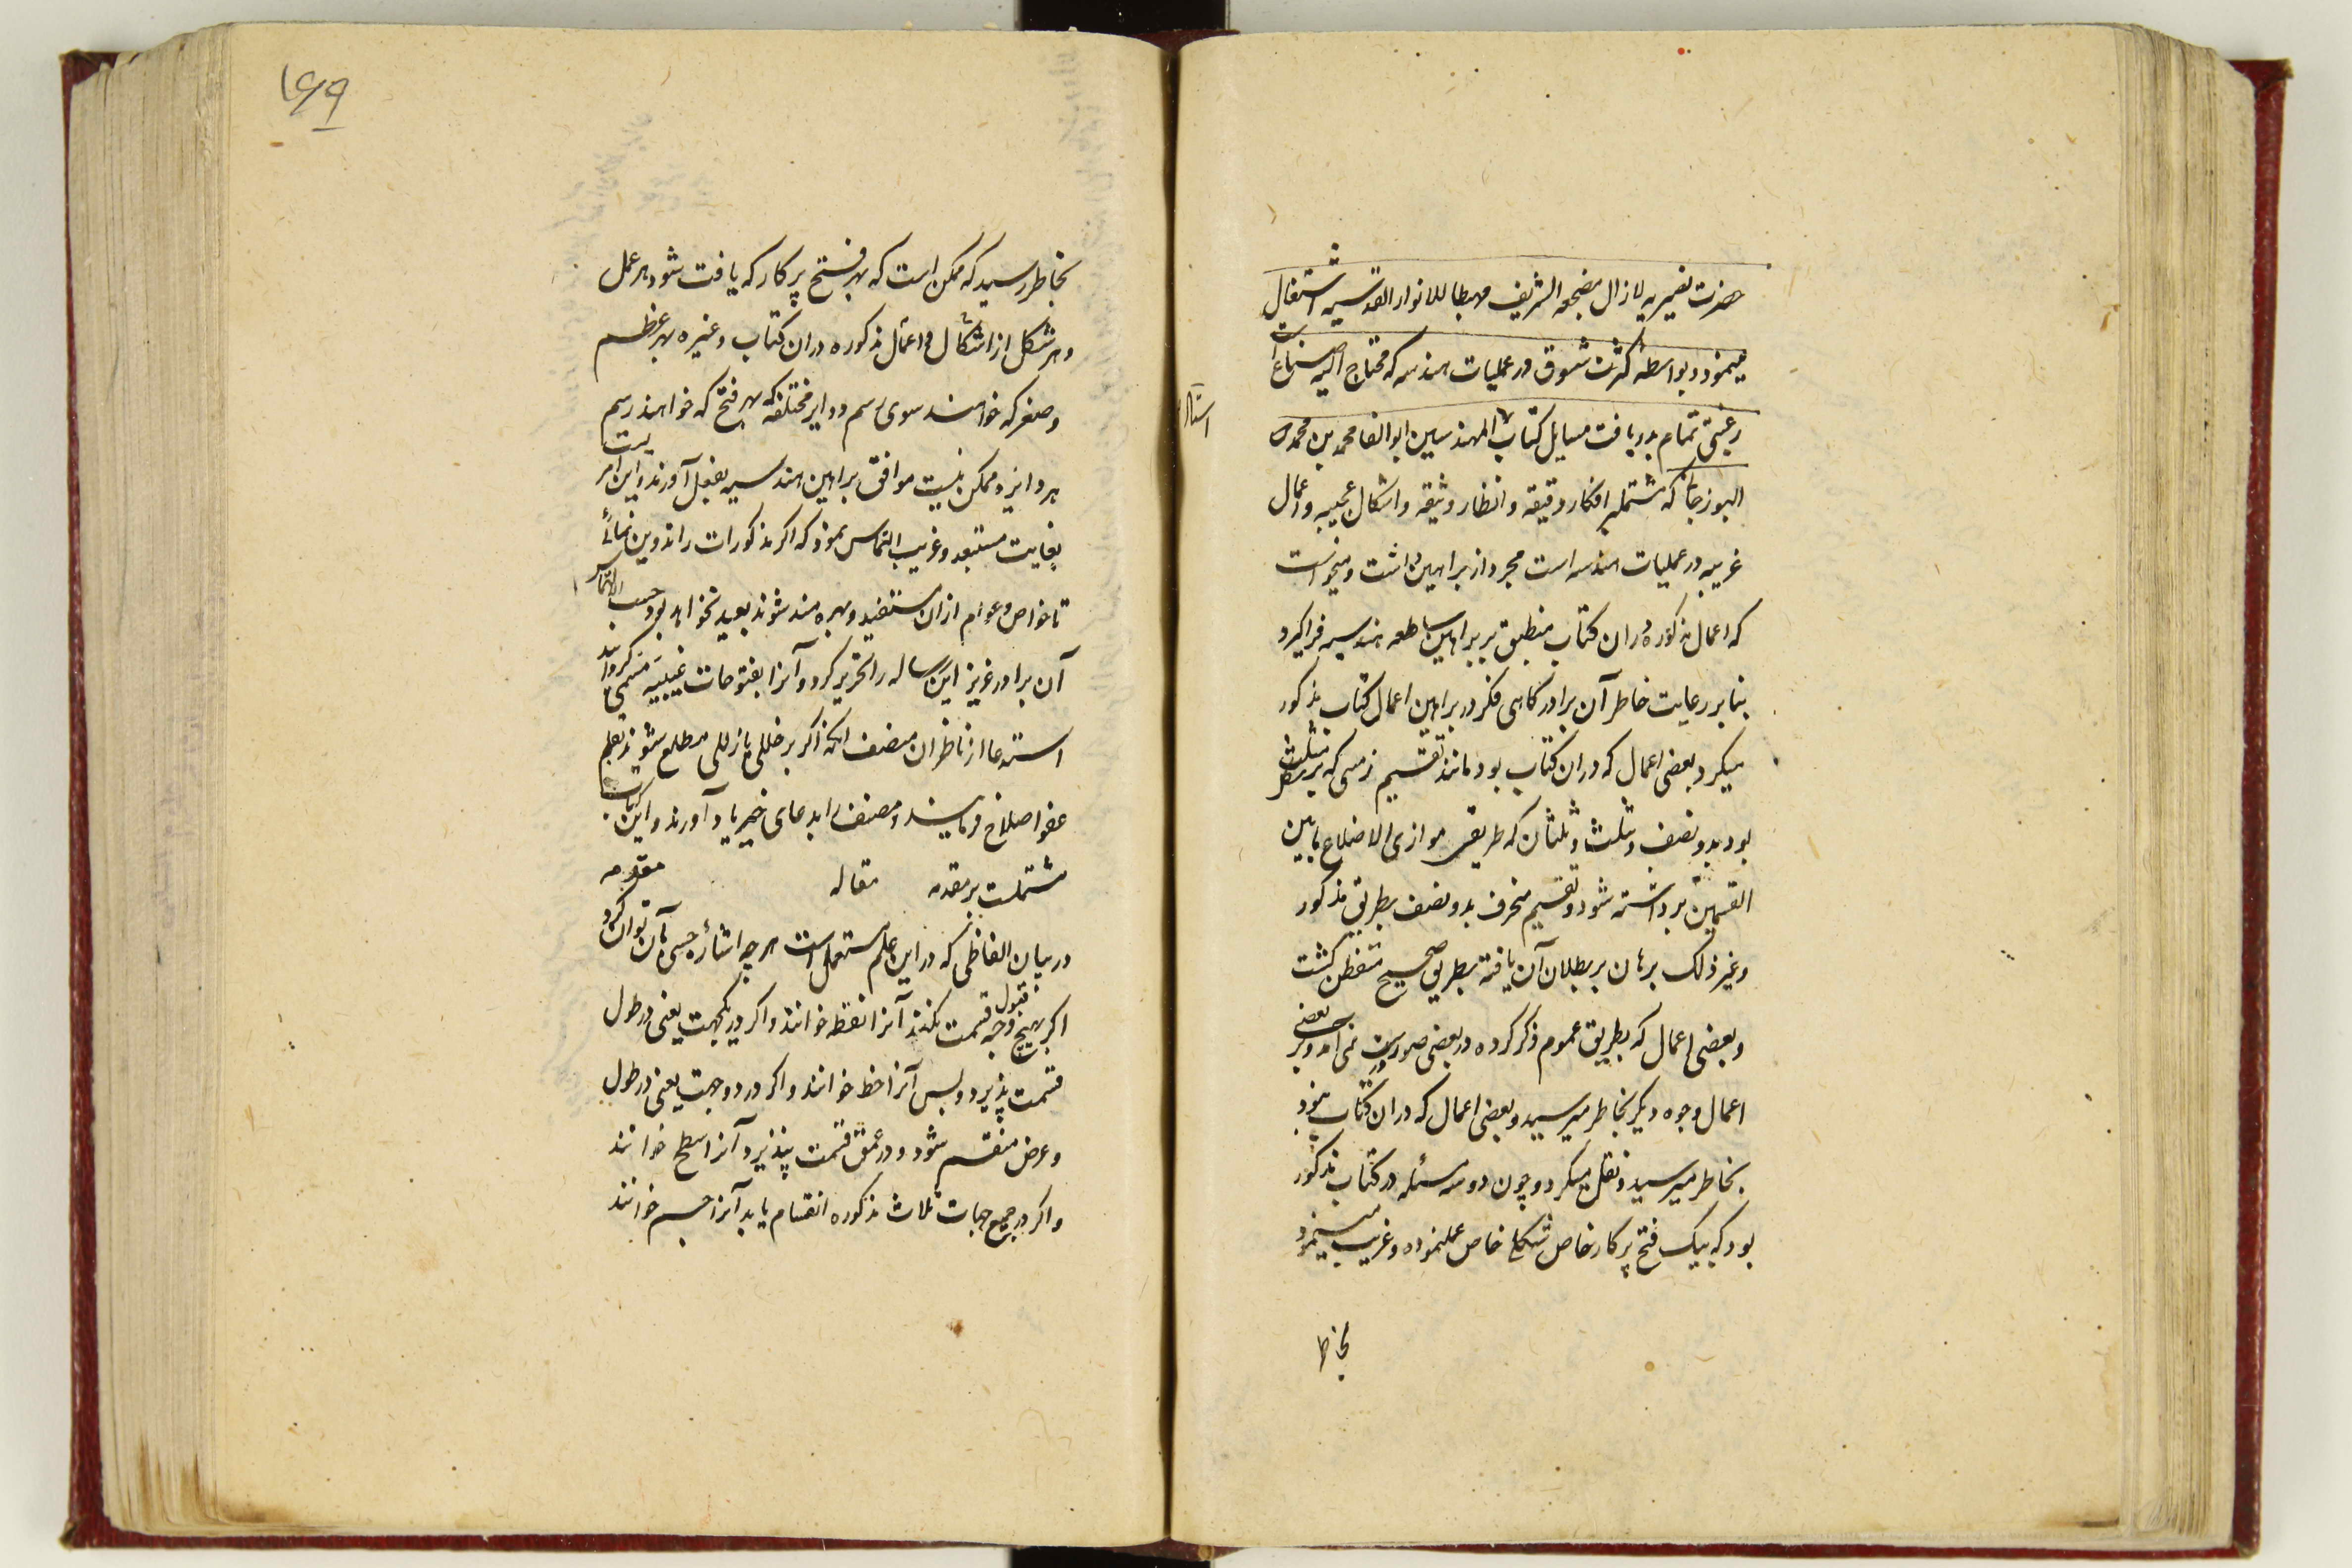 حضرت نصیریه لازال مضجعه الشریف مهبطا للانوار القدسیه اشتغال
مینمود و بواسطه کثرت شوق در عملیات هندسه که محتاج الیه صناعات
رغبتی تمام بدریافت مسایل کتاب المهندسین ابوالوفا محمد بن محمد
البوزجانی که مشتمل بر افکار دقیقه و انظار وثیقه و اشکال عجیبه و اعمال
غریبه در عملیات هندسه است مجرد از براهین داشت و میخواست
که اعمال مذکوره دران کتاب منطبق بر براهین ساطعه هندسیه فراگیرد
بنا بر رعایت خاطر آن برادر گاهی فکر در براهین اعمال کتاب مذکور
میکرد بعضی اعمال که دران کتاب بود مانند تقسیم زمینی که بر شکل مثلث
بود بدو نصف و ثلث و ثلثان که طریقی موازی الاضلاع مابین
القسمین برداشته شود و تقسیم منحرف بدو نصف بطریق مذکور
و غیر ذلک برهان بر بطلان آن یافته بطریق صحیح متفطن گشت
و بعضی اعمال که بطریق عموم ذکر کرده در بعضی صور راست نمی آمد و بر بعضی
اعمال وجوه دیگر بخاطر میرسید و بعضی اعمال که دران کتاب نبود
بخاطر میرسید و نقل میکرد و چون دو سه مسئله در کتاب مذکور
بود که بیک فتح پرکار خاص شکلی خاص عملنموده و غریب مینمود
بخاطر
۱۶۹
بخاطر رسید که ممکن است که بهر فتح پرکار که یافت شود هر عمل
و هر شکل از اشکال و اعمال مذکوره دران کتاب و غیره بهر عظم
و صغر که خواهند سوی رسم دوایر مختلفه که بهر فتح که خواهند رسم
هر دایره ممکن نیست موافق براهین هندسیه بفعل آورند و این امر
بغایت مستبعد و غریب التماس نمود که اگر مذکورات را تدوین نمائی
تا خواص و عوام ازان مستفید و بهره مند شوند بعید نخواهد بود حسب الالتماس
آن برادر عزیز این رساله را تحریر کرد و آنرا بفتوحات غیبیه مسمی گردانید
استدعا از ناظران منصف آنکه اگر بر خللی یا زللی مطلع شوند بقلم
عفو اصلاح فرمایند و مصنف را بدعای خیر یاد آورند و این کتاب
مشتملست بر مقدمه مقاله مقدمه
در بیان الفاظی که در این علم مستعمل است هر چه اشارۀ حسی بآن توان کرد
اگر بهیچ وجه قبول قسمت نکند آنرا نقطه خوانند و اگر در یکجهت یعنی در طول
قسمت پذیرد و بس آنرا خط خوانند و اگر در دو جهت یعنی در طول
و عرض منقسم شود و در عمق قسمت نپذیرد آنرا سطح خوانند
و اگر در جمیع جهات ثلاث مذکوره انقسام یابد آنرا جسم خوانند